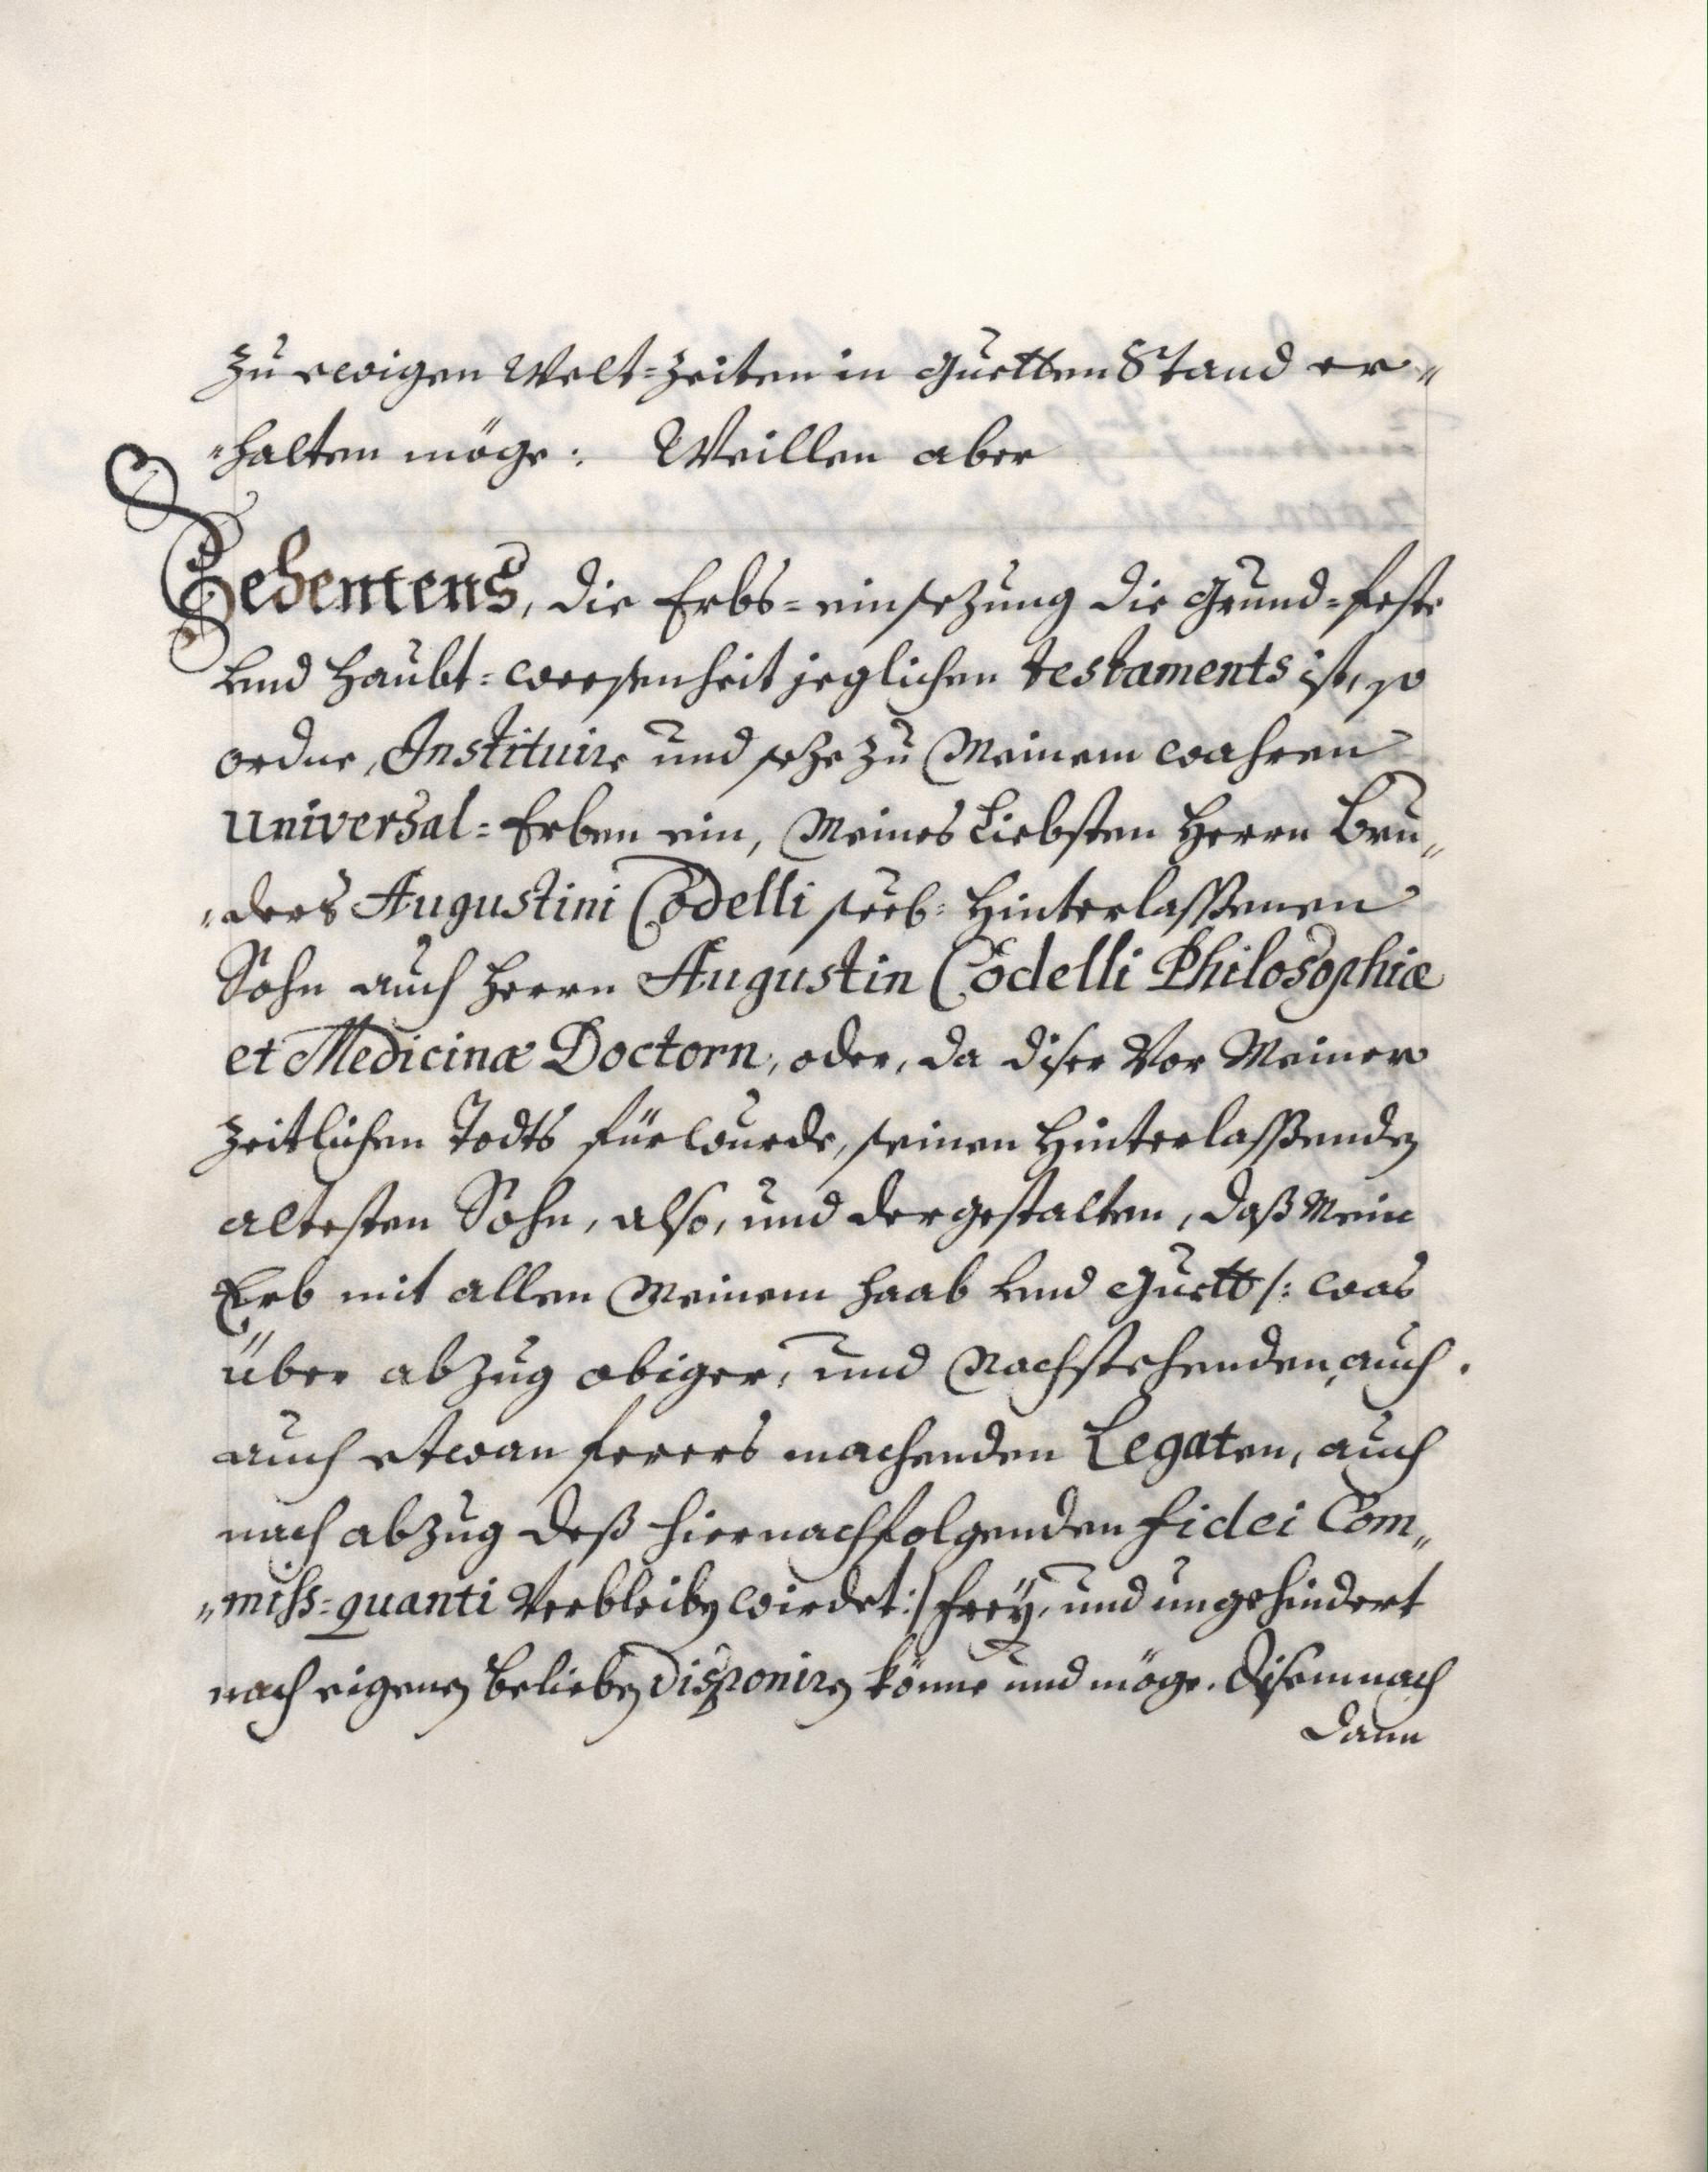 zu ewigen Welt=zeiten in guetten Stand er„
„halten möge: Weillen aber
Zehentens, die Erbs=einsezung die Grund=feste
und Haubt=weesenheit jeglichen testaments ist, so
ordne, Instituire und seze zu Meinem wahren
universal=Erben ein, Meines Liebsten Herrn Bru„
„ders Augustini Codelli seel: Hinterlassenen
Sohn auch Herrn Augustin Codelli Philosophiæ
et Medicinæ Doctorn, oder, da diser Vor Meiner
zeitlichen Todts für wurde, seinen Hinterlassenden
altesten Sohn, also, und dergestalten, daß Mein
Erb mit allen Meinem Haab und Guett /: was
über abzug obiger, und Nachstehenden, auch.
auch etwan ferers machenden Legaten, auch
nach abzug deß hiernachfolgenden fidei Com„
„miss=quanti Verbleiben wirdet :/ frey, und ungehindert
nach eigenen belieben disponiren könne und möge. Disemnach
dann